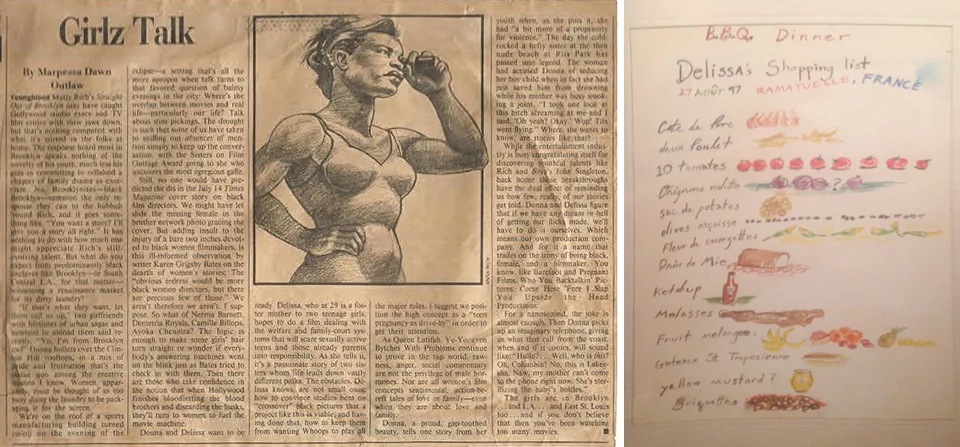 Girlz Talk
By Marpessa Dawn
Outlaw
Youngblood Matty Rich's Straight
Out of Brooklyn may have caught
Hollywood studio execs and TV
film critics with their jaws down,
but that's nothing compared with
what it's stirred in the folks at
home. The response heard most in
Brooklyn speaks nothing of the
novelty of his youth, much less his
guts in committing to celluloid a
chapter of family drama as exor-
cism. No, Brooklynites—black
Brooklyn—summon the only re-
sponse they can to the hubbub
'round Rich, and it goes some-
thing like, "You want a story? I'll
give you a story all right." It has
nothing to do with how much one
might appreciate Rich's still-
evolving talent. But what do you
expect from predominantly black
enclaves like Brooklyn—or South
Central L.A., for that matter—
witnessing a renaissance market
for its dirty laundry?
"If that's what they want, let
them call us up," two girlfriends
with histories of urban sagas and
nowhere to unload them said re-
cently. "Yo, I'm from Brook-
lyn!" Donna hollers over the Clin-
ton Hill rooftops, in a mix of
pride and frustration that's the
status quo among the creative
sisters I know. Women, appar-
ently, must be thought of as too
busy doing the laundry to be pack-
aging it for the screen.
We're on the roof of a sports
manufacturing building turned
co-op on the evening of the
eclipse—a setting that's all the
more apropos when talk turns to
that favored question of balmy
evenings in the city: Where's the
overlap between movies and real
life—particularly our life? Talk
means slim pickings. The drought
is such that some of us have taken
to stalking out absences of men-
tion simply to keep up the conver-
sation, with the Sisters on Film
Outrage Award going to she who
uncovers the most egregious gaffe.
Still, no one would have pre-
dicted the dis in the July 14 Times
Magazine cover story on black
film directors. We might have let
slide the missing female in the
brother network photo gracing the
cover. But adding insult to the
injury of a bare two inches devot-
ed to black women filmmakers, is
this ill-informed observation by
writer Karen Grigsby Bates on the
dearth of women's stories: "The
obvious redress would be more
black women directors, but there
are precious few of those." We
aren't therefore we aren't, I sup-
pose. So what of Neema Barnett,
Demetria Royals, Camille Billops,
Ayoka Chenzira? The logic is
enough to make some girls' hair
turn straight or wonder if every-
body's answering machines went
on the blink just as Bates tried to
check in with them. Then there
are those who take confidence in
the notion that when Hollywood
finishes bloodletting the blood
brothers and discarding the husks,
they'll turn to women to fuel the
movie machine.
Donna and Delissa want to be
ready. Delissa, who at 29 is a fos-
ter mother to two teenage girls,
hopes to do a film dealing with
the welfare and family-court sys-
tems that will scare sexually active
teens and those already parents
into responsibility. As she tells it,
it's a passionate story of two sis-
ters whom life leads down vastly
different paths. The obstacles, De-
lissa knows, are not small ones:
how to convince studios bent on
"crossover" black pictures that a
project like this is viable; and hav-
ing done that, how to keep them
from wanting Whoopi to play all
the major roles. I suggest we posi-
tion the high concept as a "teen
pregnancy as drive-by" in order to
get their attention.
As Queen Latifah, Yo-Yo, even
Bytches With Problems continue
to prove in the rap world, raw-
ness, anger, social commentary
are not the privilege of male hor-
mones. Nor are all women's film
concepts sentimental, action-be-
reft tales of love or family—even
when they are about love and
family.
Donna, a proud, gap-toothed
beauty, tells one story from her
youth when, as she puts it, she
had "a bit more of a propensity
for violence." The day she cold-
cocked a hefty sister at the then
nude beach at Riis Park has
passed into legend. The woman
had accused Donna of seducing
her boy child when in fact she had
just saved him from drowning
while his mother was busy smok-
ing a joint. "I took one look at
this bitch screaming at me and I
said, 'Oh yeah? Okay.' Wop! Tits
went flying." Where, she wants to
know, are stories like that?
While the entertainment indus-
try is busy congratulating itself for
discovering youthful talents like
Rich and Boyz's John Singleton,
back home those breakthroughs
have the dual effect of reminding
us how few, really, of our stories
get told. Donna and Delissa figure
that if we have any dream in hell
of getting our flicks made, we'll
have to do it ourselves. Which
means our own production com-
pany. And for it a name that
trades on the irony of being black,
female, and a filmmaker. You
know, like Barefoot and Pregnant
Films, Who You Backtalkin' Pic-
tures, Come Here 'Fore I Slap
You Upside the Head
Productions.
For a nanosecond, the joke is
almost enough. Then Donna picks
up an imaginary telephone, giving
us what that call from the coast,
when and if it comes, will sound
like: "Hullo? . . . Well, who is this?
Oh, Columbia? No, this is Lakee-
sha. Naw, my mother can't come
to the phone right now. She's ster-
ilizing the baby's bottles."
The girls are in Brooklyn
. . . and L.A. . . . and East St. Louis
. . . and if you don't believe
that then you've been watching
too many movies.
B.B.Q. Dinner
Delissa's Shopping list
27 AOÛT 97 RAMATUELLE, FRANCE
Cote de Porc
deux Poulet
10 tomates
Oignons
?
sac de potates
olives niçoise
Fleur de courgettes
Pain de Mie
Ketchup
Molasses
Fruit melanges:
Gateaux St. Tropezienne
yellow mustard?
Briquettes